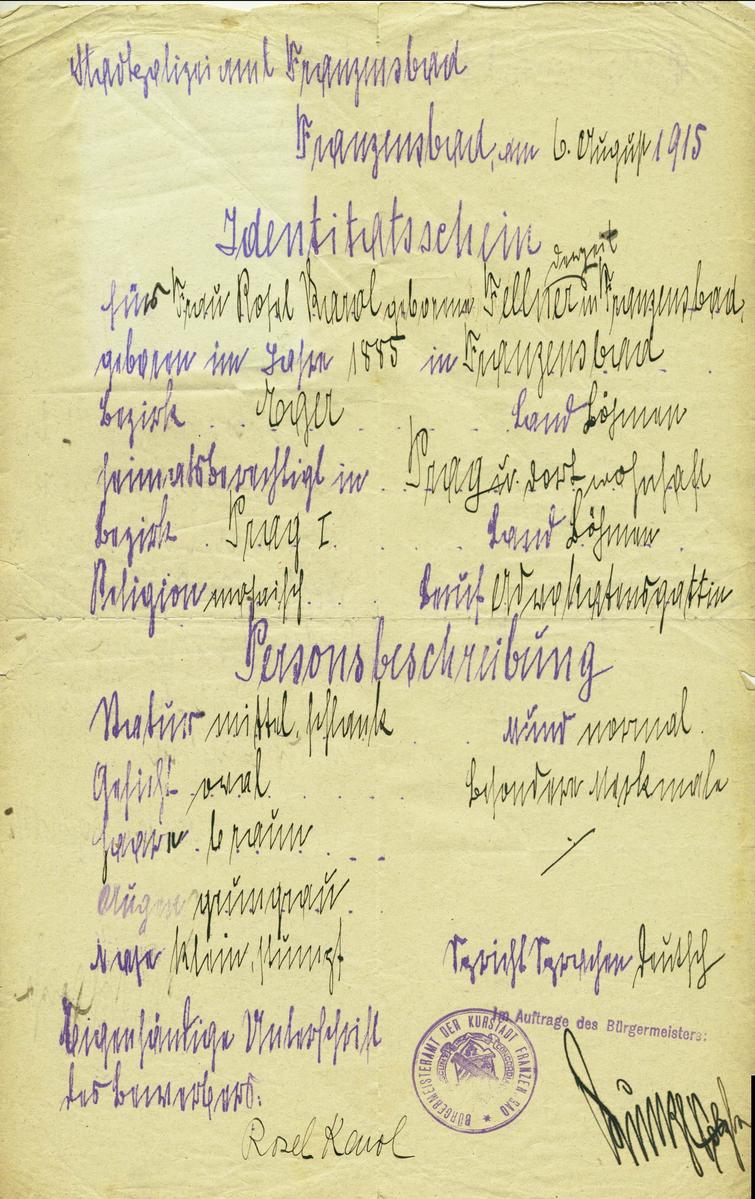 Stadtpolizeiamt Franzensbad
Franzensbad, am 6. August 1915
Identitätsschein
derzeit
für Frau Rosel Karol geborene Fellner in Franzensbad,
geboren im Jahre 1885 in Franzensbad
Bezirk Eger Land Böhmen
heimatsberechtigt in Prag u. dort wohnhaft
Bezirk Prag I Land Böhmen
Religion mosaisch Beruf Advokatensgattin
Personsbeschreibung
Statur mittel, schlank Mund normal
Gesicht oval besondere Merkmale
Haare braun /
Augen grüngrau
Nase klein, stumpf Spricht Sprachen deutsch
Eigenhändige Unterschrift
des Bewerbers:
Im Auftrage des Bürgermeisters:
BÜRGERMEISTERAMT DER KURSTADT FRANZENSBAD
Rosel Karol